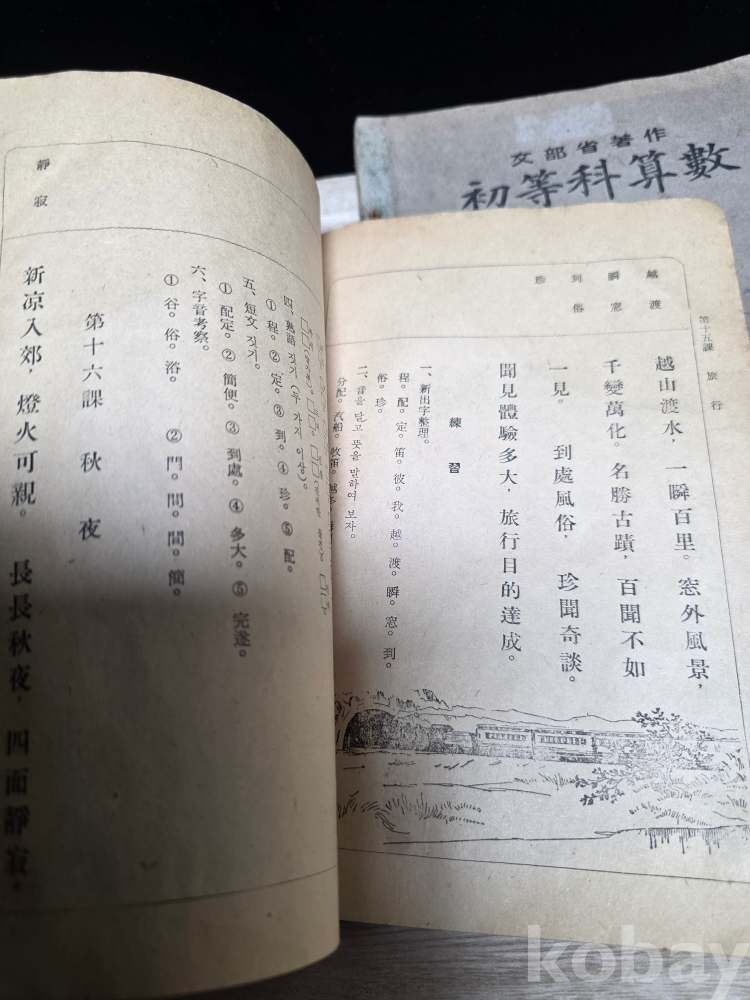 文部省著作
初等科算數
第十五課 旅行
越 渡
瞬 窓
到 俗
珍
越山渡水, 一瞬百里。窓外風景,
千變萬化。名勝古蹟, 百聞不如
一見。 到處風俗, 珍聞奇談。
聞見體驗多大, 旅行目的達成。
練習
一、新出字整理。
程。配。定。笛。彼。我。越。渡。瞬。窓。到。
俗。珍。
二、音을 달고 뜻을 말하여 보자。
分配。汽船。牧笛。
四、熟語 짓기(두 가지 이상)。
① 程。② 定。③ 到。④ 珍。⑤ 配。
五、短文 짓기。
① 配定。② 簡便。③ 到處。④ 多大。⑤ 完遂。
六、字音考察。
① 谷。俗。浴。 ② 門。問。間。簡。
第十六課 秋夜
靜 寂
新凉入郊, 燈火可親。 長長秋夜, 四面靜寂,
kobay